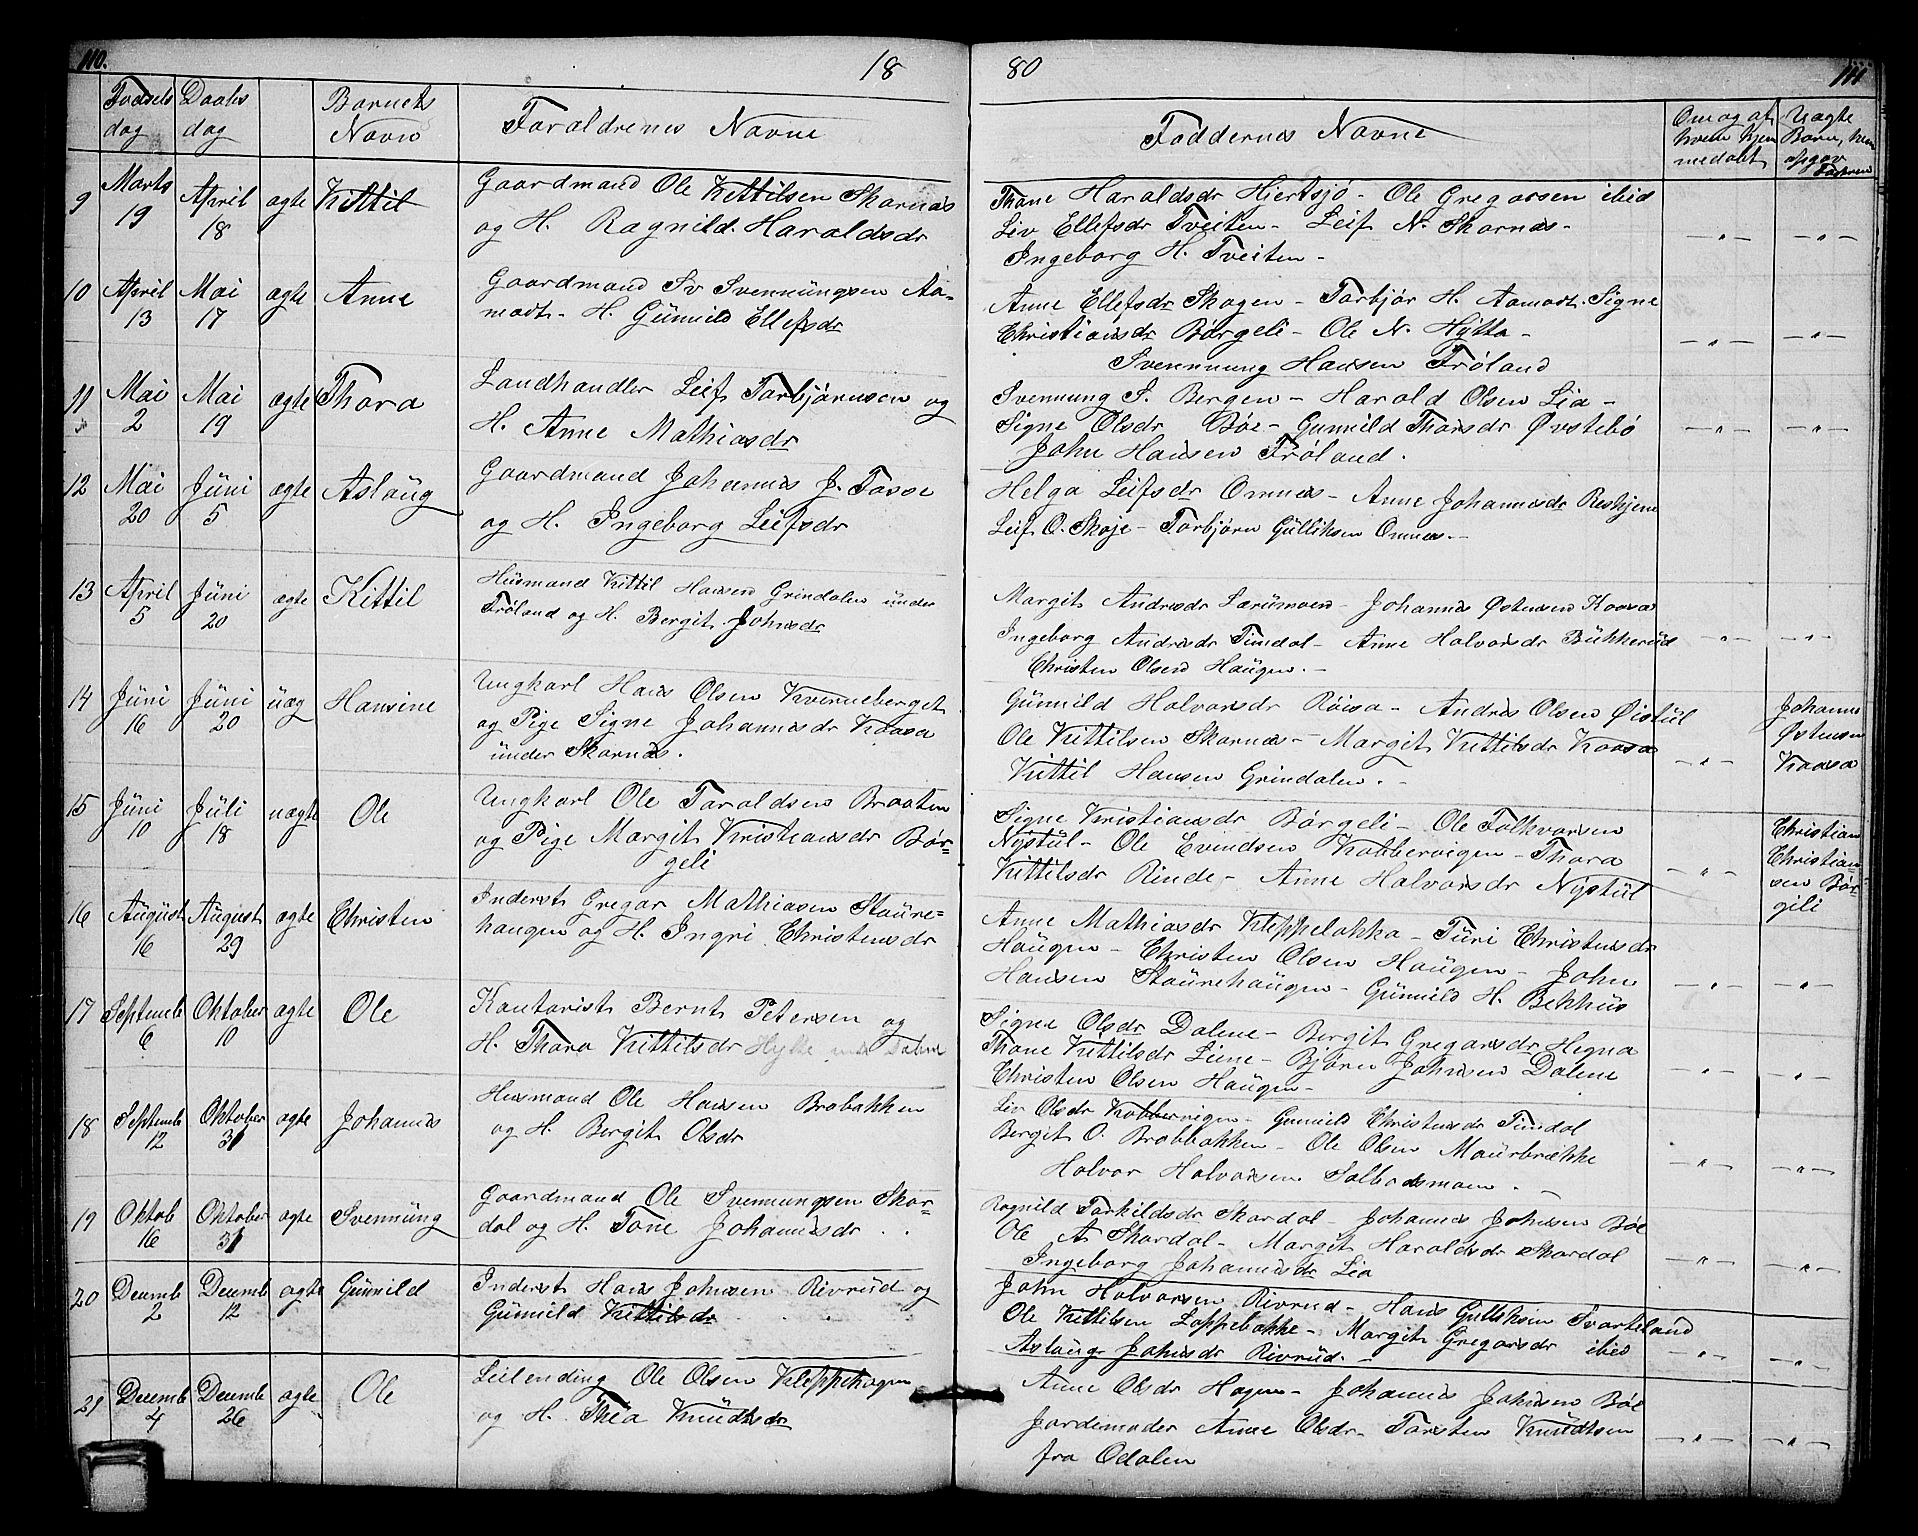 110.
18
80
111
Fødsels
dag
Daabs
dag
Barnets
Navn
Forældrenes Navne
Faddernes Navne
Om og af
hvem hjem
medøbt
Uægte
Børn, hvem
opgav
Faderen
9
Marts
19
April
18
ægte
Kittil
Gaardmand Ole Kittilsen Skornæs
og H. Ragnild Haraldsdr
Thone Haraldsdr Hjertsjø - Ole Gregarsen ibid
Liv Ellefsdr Tveiten - Leif N. Skornæs -
Ingeborg H. Tveiten -
- " -
- " -
10
April
13
Mai
17
ægte
Anne
Gaardmand Sv Svennüngsen Aa-
modt - H. Günnild Ellefsdr
Anne Ellefsdr Skogen - Torbjør H. Aamodt. Signe
Christiansdr Børgeli - Ole N. Hÿtta -
Svennnung Hansen Frøland
- " -
- " -
11
Mai
2
Mai
19
ægte
Thora
Landhandler Leif Torbjørnsen og
H. Anne Mathiasdr
Svennung S. Bergen - Harald Olsen Lia -
Signe Olsdr Bøe - Gunnild Thorsdr Øvstebø
John Hansen Frøland.
- " -
- " -
12
Mai
20
Jüni
5
ægte
Aslaüg
Gaardmand Johannes J. Fosse
og H. Ingeborg Leifsdr
Helga Leifsdr Omnæs - Anne Johannesdr Reskjem
Leif O. Skoje - Torbjørn Gülliksen Omnæs. -
13
April
5
Jüni
20
ægte
Kittil
Hüsmand Kittil Hansen Grindalen ünder
Frøland og H. Bergit Johnsdr
Margit Andresdr Lærümoen - Johannes Østensen Kaasa
Ingeborg Andresdr Timdal - Anne Halvorsdr Bükkerüd
Christen Olsen Haügen. -
- " -
- " -
14
Jüni
16
Jüni
20
üæg
Hansine
Ungkarl Hans Olsen Kverneberget
og Pige Signe Johannesdr Kaasa
ünder Skornæs.
Günnild Halvorsdr Røisa - Andres Olsen Øistül
Ole Kittilsen Skornæs - Margit Kittilsdr Kaasa
Kittil Hansen Grindalen. -
- " -
Johannes
Østensen
Kaasa
15
Jüni
10
Jüli
18
uægte
Ole
Ungkarl Ole Taraldsen Braaten
og Pige Margit Kristiansdr Bør-
geli
Signe Kristiansdr Børgeli - Ole Folkvorsen
Nÿstül - Ole Evindsen Kobbervigen - Thora
Kittilsdr Rinde - Anne Halvorsdr Nÿstül
- " -
Christian
Christian-
sen Bør-
geli
16
Aügüst
16
Aügust
29
ægte
Christen
Inderst Gregar Mathiasen Staüre-
haugen og H. Ingri Christensdr
Anne Mathiasdr Kleppelakka - Türi Christensdr
Haügen - Christen Olsen Haügen - John
Hansen Staürehaügen - Günnild H. Bekhüs
- " -
- " -
17
Septemb
6
Oktober
10
ægte
Ole
Kantorist Bernt Petersen og
H. Thora Kittilsdr Hytte und Dalene
Signe Olsdr Dalene - Bergit Gregarsdr Hegna
Thone Kittilsdr Liene - Bjørn Johnsen Dalene
Christen Olsen Haügen -
- " -
- " -
18
Septemb
12
Oktober
31
ægte
Johannes
Husmand Ole Hansen Brobakken
og H. Bergit Olsdr
Liv Olsdr Kobbervigen - Gunnild Christensdr Timdal
Bergit O. Brobbakken - Ole Olsen Maürbrække
Halvor Halvorsen Solbodsmoen. -
- " -
- " -
19
Oktob
16
Oktober
31
ægte
Svennüng
Gaardmand Ole Svennungsen Skor-
dal og H. Tone Johannesdr
Ragnild Torkildsdr Skordal - Johannes Johnsen Bøe
Ole A Skordal - Margit Haraldsdr Skordal
Ingeborg Johannesdr Lia
- " -
- " -
20
Decemb
2
Decemb
12
ægte
Günnild
Inderst Hans Johnsen Rivrüd og
Günnild Kittilsdr
John Halvorsen Rivrud - Hans Gulliksen Svarteland
Ole Kittilsen Loppebakke - Margit Gregarsdr ibid
Aslaüg Johnsdr Rivrüd. -
- " -
- " -
21
Decemb
4
Decemb
26
ægte
Ole
Leilending Ole Olsen Kleppehagen
og H. Thea Knüdtsdr
Anne Olsdr Hagen - Johannes Johnsen Bøe
Jordemoder Anne Olsdr - Torsten Knüdtsen
fra Odalen
- " -
- " -